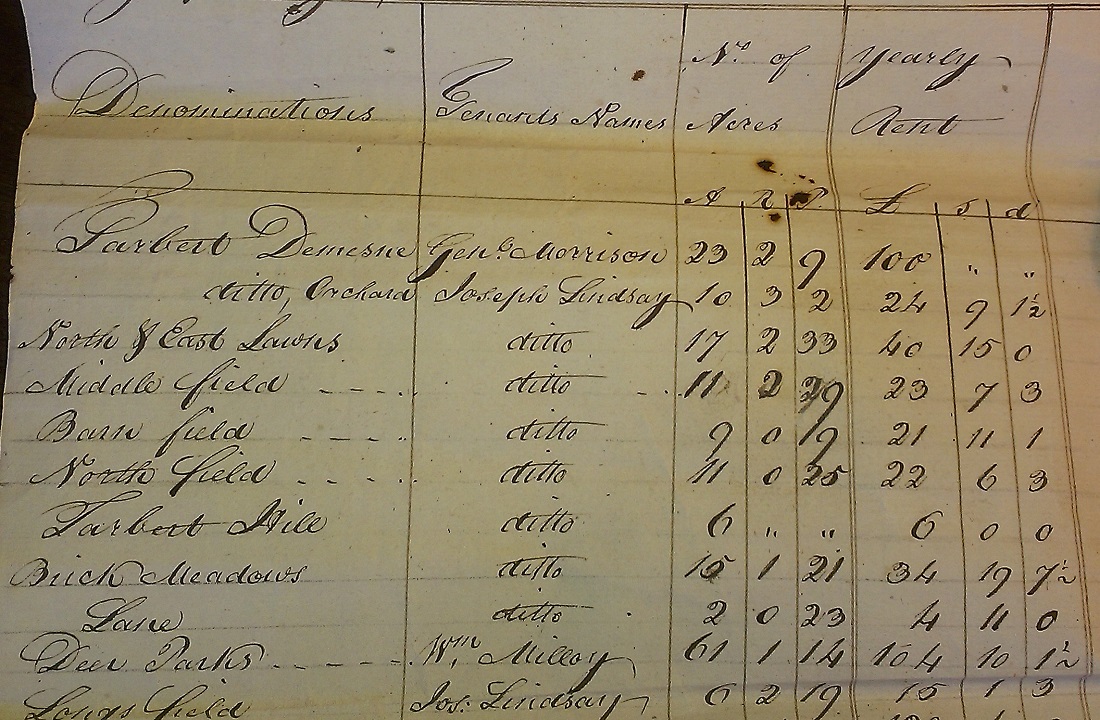 Nº. of Yearly
Denominations Tenants Names Acres Rent
A R P £ S d
Tarbert Demesne Genl. Morrison 23 2 9 100 " "
ditto, Orchard Joseph Lindsay 10 3 2 24 9 1½
North & East Lawns ditto 17 2 33 40 15 0
Middle field ---. ditto 11 2 29 23 7 3
Barn field ---. ditto 9 0 19 21 11 1
North field ---. ditto 11 0 25 22 6 3
Tarbert Hill ditto 6 " " 6 0 0
Brick Meadows ditto 15 1 21 34 19 7½
Lane ditto 2 0 23 4 11 0
Deer Parks ----. Wm. Milloy 61 1 14 104 10 1½
Longs field Jos: Lindsay 6 2 19 15 1 3